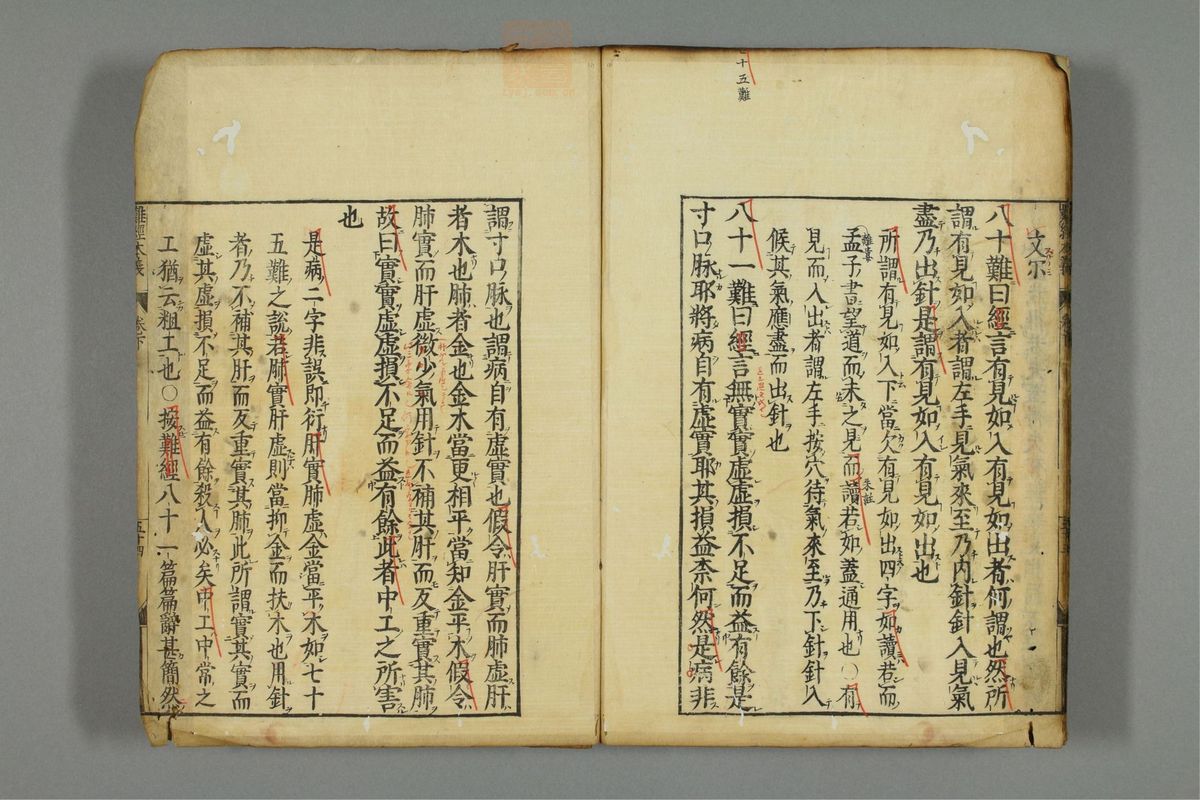 七十五難
文尓
八十難曰經言有見如入有見如出者何謂也然所
謂有見如入者謂左手見氣來至乃內針針入見氣
盡乃出針是謂有見如入有見如出也
所謂有見如入下當欠有見如出四字如讀若而
孟子書望道而未之見而讀若如蓋通用也〇有
離婁
朱註
見而入出者謂左手按穴待氣來至乃下針針入
候其氣應盡而出針也
八十一難曰經言無實實虛虛損不足而益有餘是
寸口脉耶將病自有虛實耶其損益柰何然是病非
謂寸口脉也謂病自有虛實也假令肝實而肺虛肝
者木也肺者金也金木當更相平當知金平木假令
肺實而肝虛微少氣用針不補其肝而反重實其肺
故曰實實虛虛損不足而益有餘此者中工之所害
也
是病二字非誤即衍肝實肺虛金當平木如七十
五難之說若肺實肝虛則當抑金而扶木也用針
者乃不補其肝而反重實其肺此所謂實其實而
虛其虛損不足而益有餘殺人必矣中工中常之
工猶云粗工也〇按難經八十一篇篇辭甚簡然
難經本義
卷下
五十四